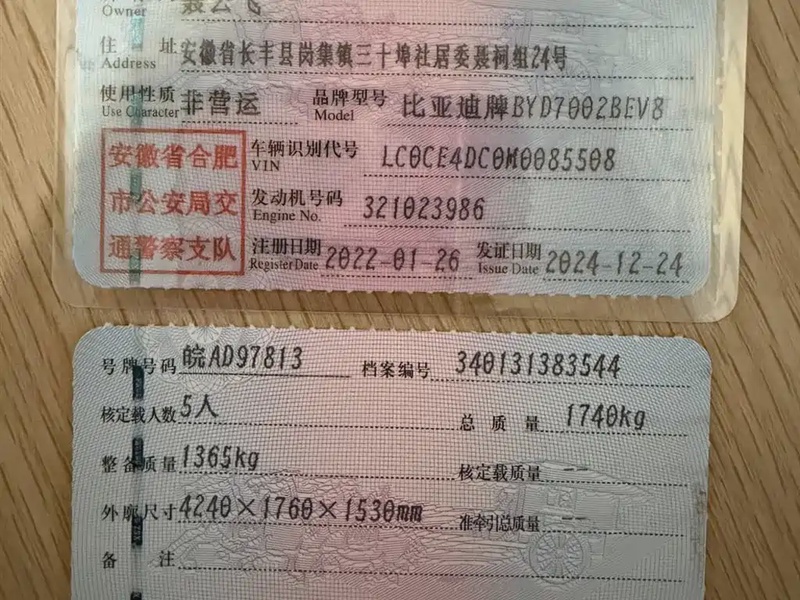 Owner
住 址 安徽省长丰县岗集镇三十埠社居委聂祠组24号
Address
使用性质 非营运 品牌型号 比亚迪牌BYD7002BEV8
Use Character Model
安徽省合肥
市公安局交
通警察支队
车辆识别代号 LC0CE4DC0M0085508
VIN
发动机号码 321023986
Engine No.
注册日期 2022-01-26 发证日期 2024-12-24
Register Date Issue Date
号牌号码 皖AD97813 档案编号 340131383544
核定载人数 5人 总 质 量 1740kg
整备质量 1365kg 核定载质量 --
外廓尺寸 4240×1760×1530mm 准牵引总质量 --
备 注